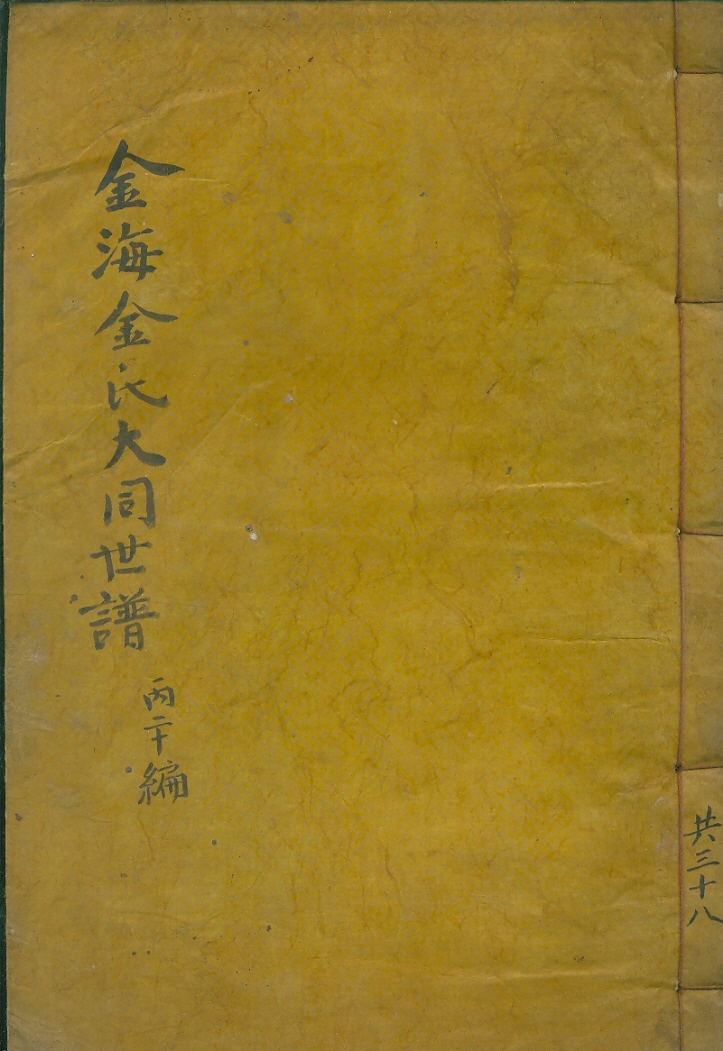 金海金氏大同世譜
丙二十編
共三十八